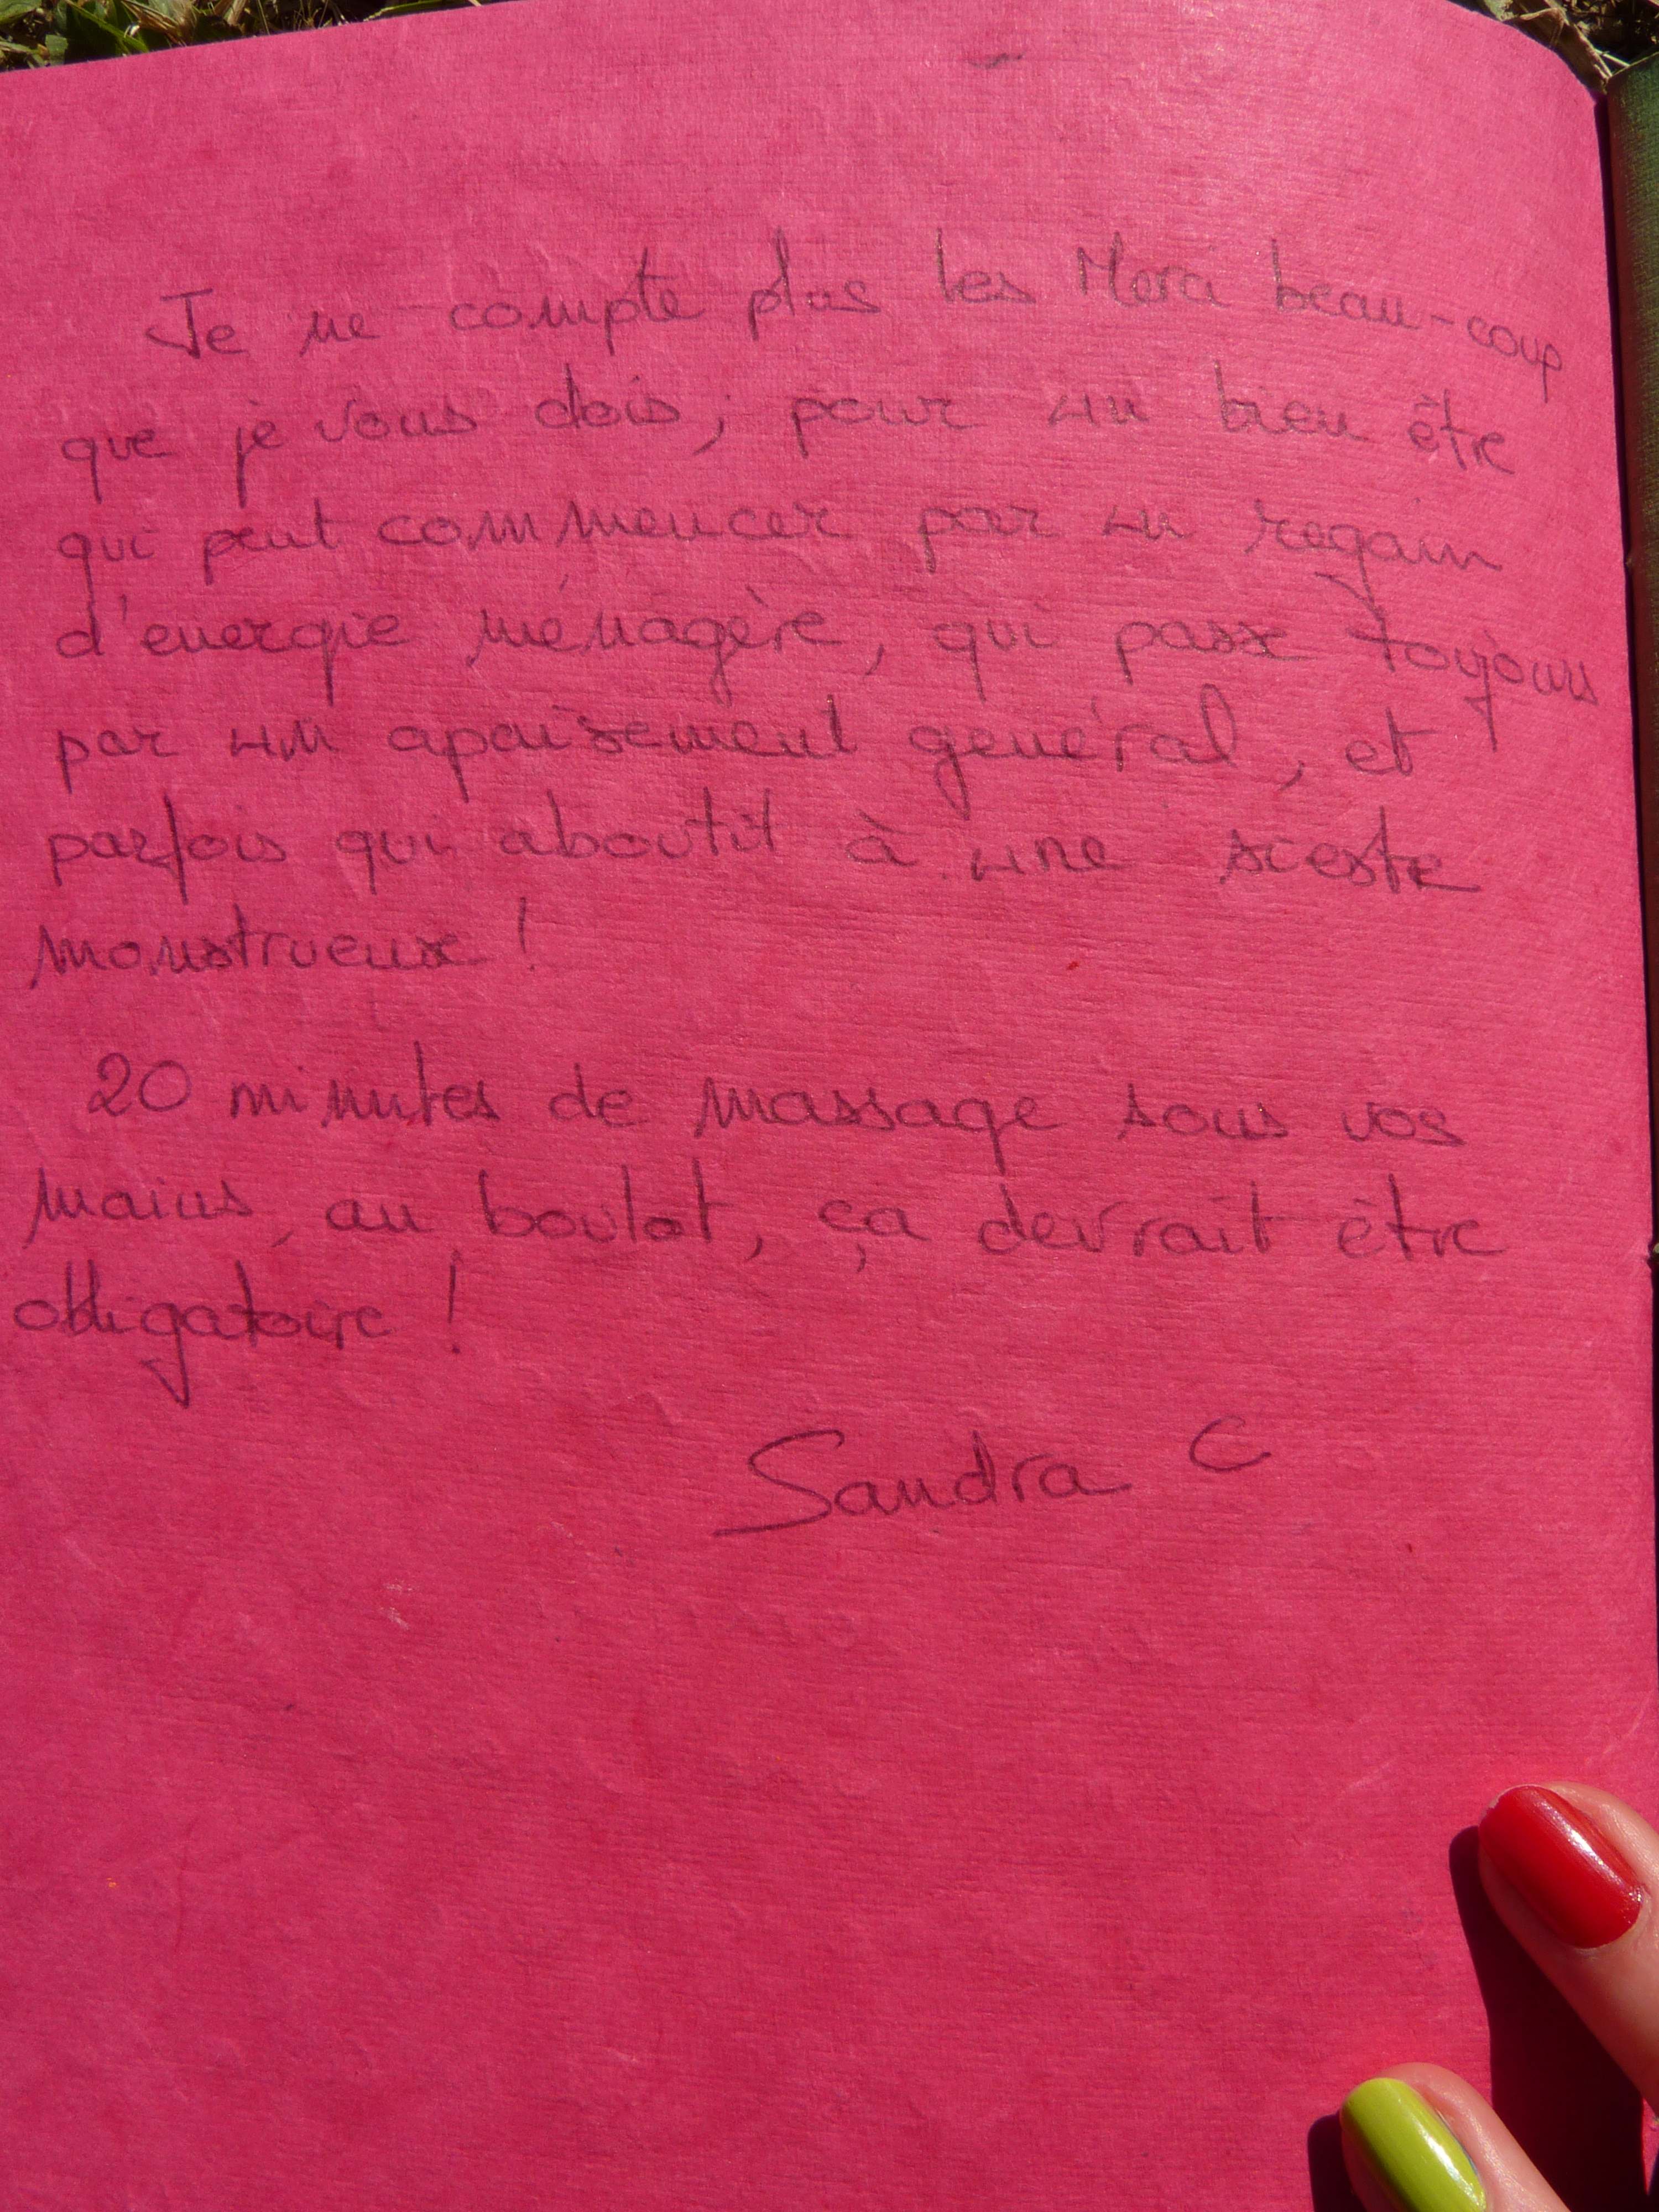 Je ne compte plus les Merci beau-coup
que je vous dois, pour un bien être
qui peut commencer par un regain
d'energie ménagère, qui passe toujours
par un apaisement général, et
parfois qui aboutit à une sieste
monstrueuse !
20 minutes de massage sous vos
mains, au boulot, ça devrait être
obligatoire !
Sandra C